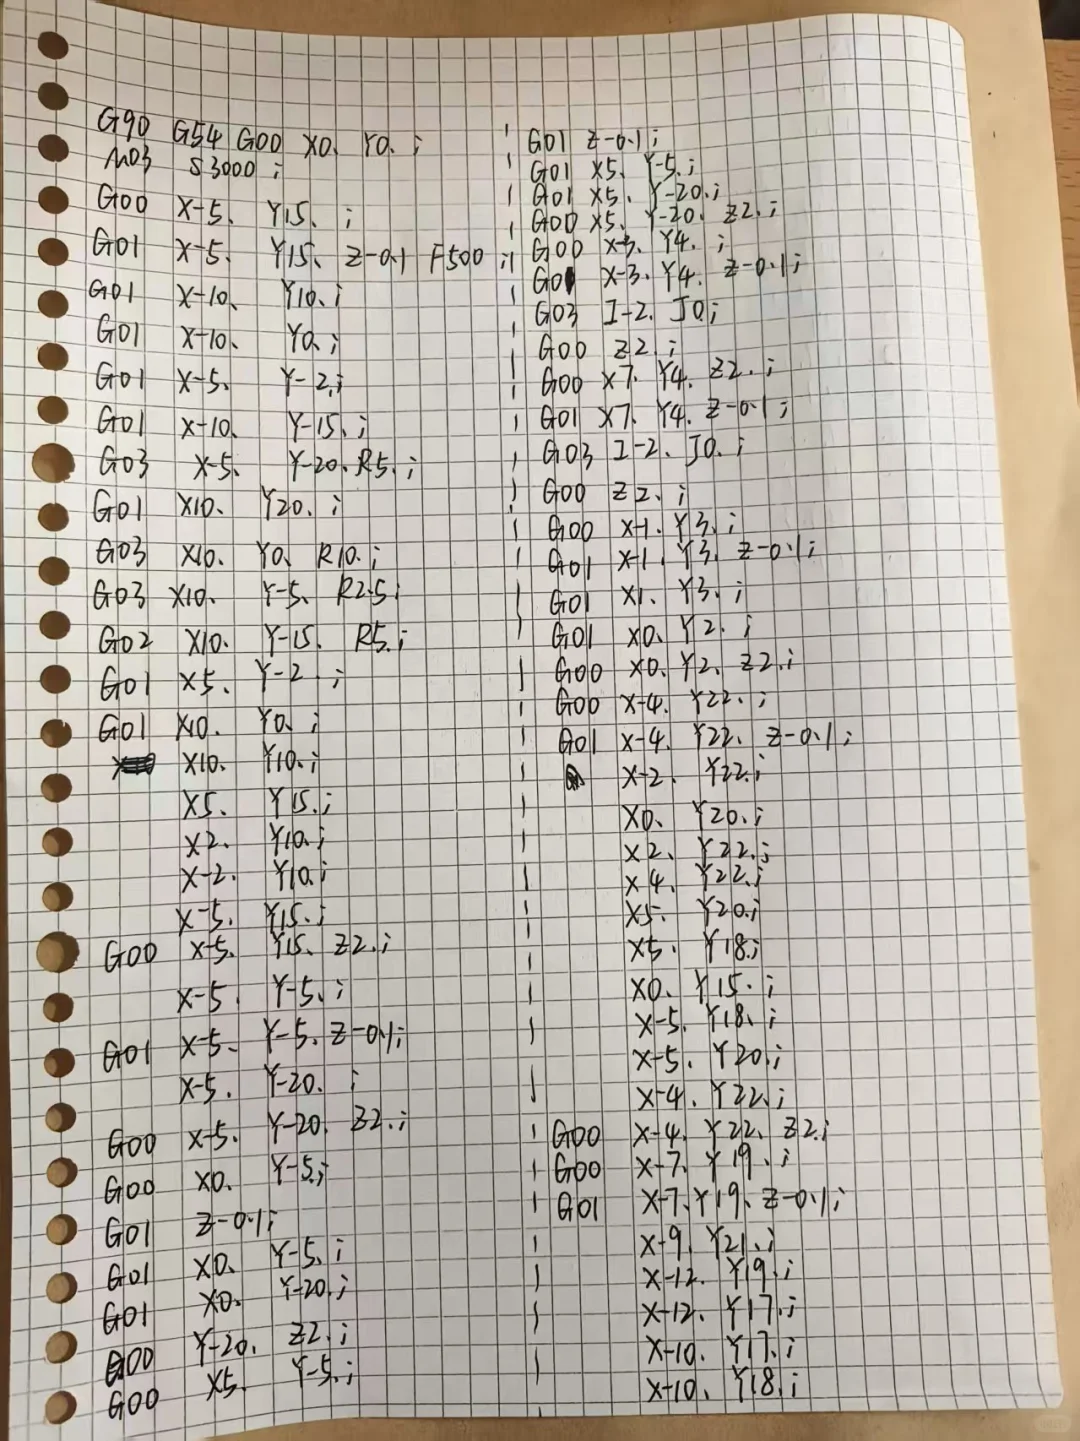 G90 G54 G00 X0. Y0. ;
M03 S3000 ;
G00 X-5. Y15. ;
G01 X-5. Y15. Z-0.1 F500 ;
G01 X-10. Y10. ;
G01 X-10. Y0. ;
G01 X-5. Y-2. ;
G01 X-10. Y-15. ;
G03 X-5. Y-20. R5. ;
G01 X10. Y20. ;
G03 X10. Y0. R10. ;
G03 X10. Y-5. R2.5 ;
G02 X10. Y-15. R5. ;
G01 X5. Y-2. ;
G01 X10. Y0. ;
X10. Y10. ;
X5. Y15. ;
X2. Y10. ;
X-2. Y10. ;
X-5. Y15. ;
G00 X-5. Y15. Z2. ;
X-5 Y-5. ;
G01 X-5. Y-5. Z-0.1 ;
X-5. Y-20. ;
G00 X-5. Y-20. Z2. ;
G00 X0. Y-5. ;
G01 Z-0.1 ;
G01 X0. Y-5. ;
G01 X0. Y-20. ;
G00 Y-20. Z2. ;
G00 X5. Y-5. ;
G01 Z-0.1 ;
G01 X5. Y-5. ;
G01 X5. Y-20. ;
G00 X5. Y-20. Z2. ;
G00 X-3. Y4. ;
G01 X-3. Y4. Z-0.1 ;
G03 I-2. J0. ;
G00 Z2. ;
G00 X7. Y4. Z2. ;
G01 X7. Y4. Z-0.1 ;
G03 I-2. J0. ;
G00 Z2. ;
G00 X-1. Y3. ;
G01 X-1. Y3. Z-0.1 ;
G01 X1. Y3. ;
G01 X0. Y2. ;
G00 X0. Y2. Z2. ;
G00 X-4. Y22. ;
G01 X-4. Y22. Z-0.1 ;
X-2. Y22. ;
X0. Y20. ;
X2. Y22. ;
X4. Y22. ;
X5. Y20. ;
X5. Y18. ;
X0. Y15. ;
X-5. Y18. ;
X-5. Y20. ;
X-4. Y22. ;
G00 X-4. Y22. Z2. ;
G00 X-7. Y19. ;
G01 X-7. Y19. Z-0.1 ;
X-9. Y21. ;
X-12. Y19. ;
X-12. Y17. ;
X-10. Y17. ;
X-10. Y18. ;